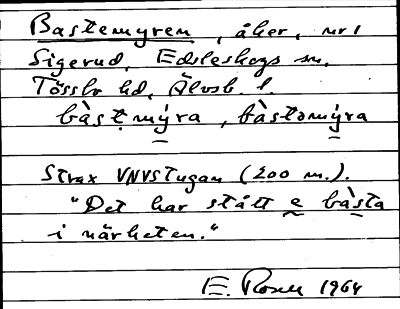 Bastemyren, åker, nr 1
Sigerud, Edsleskogs sn.
Tössbo hd, Älvsb. l.
bàstmýra, bàstəmýra
Strax VNV stugan (200 m.).
"Det har stått e bàsta
i närheten."
E. 1964